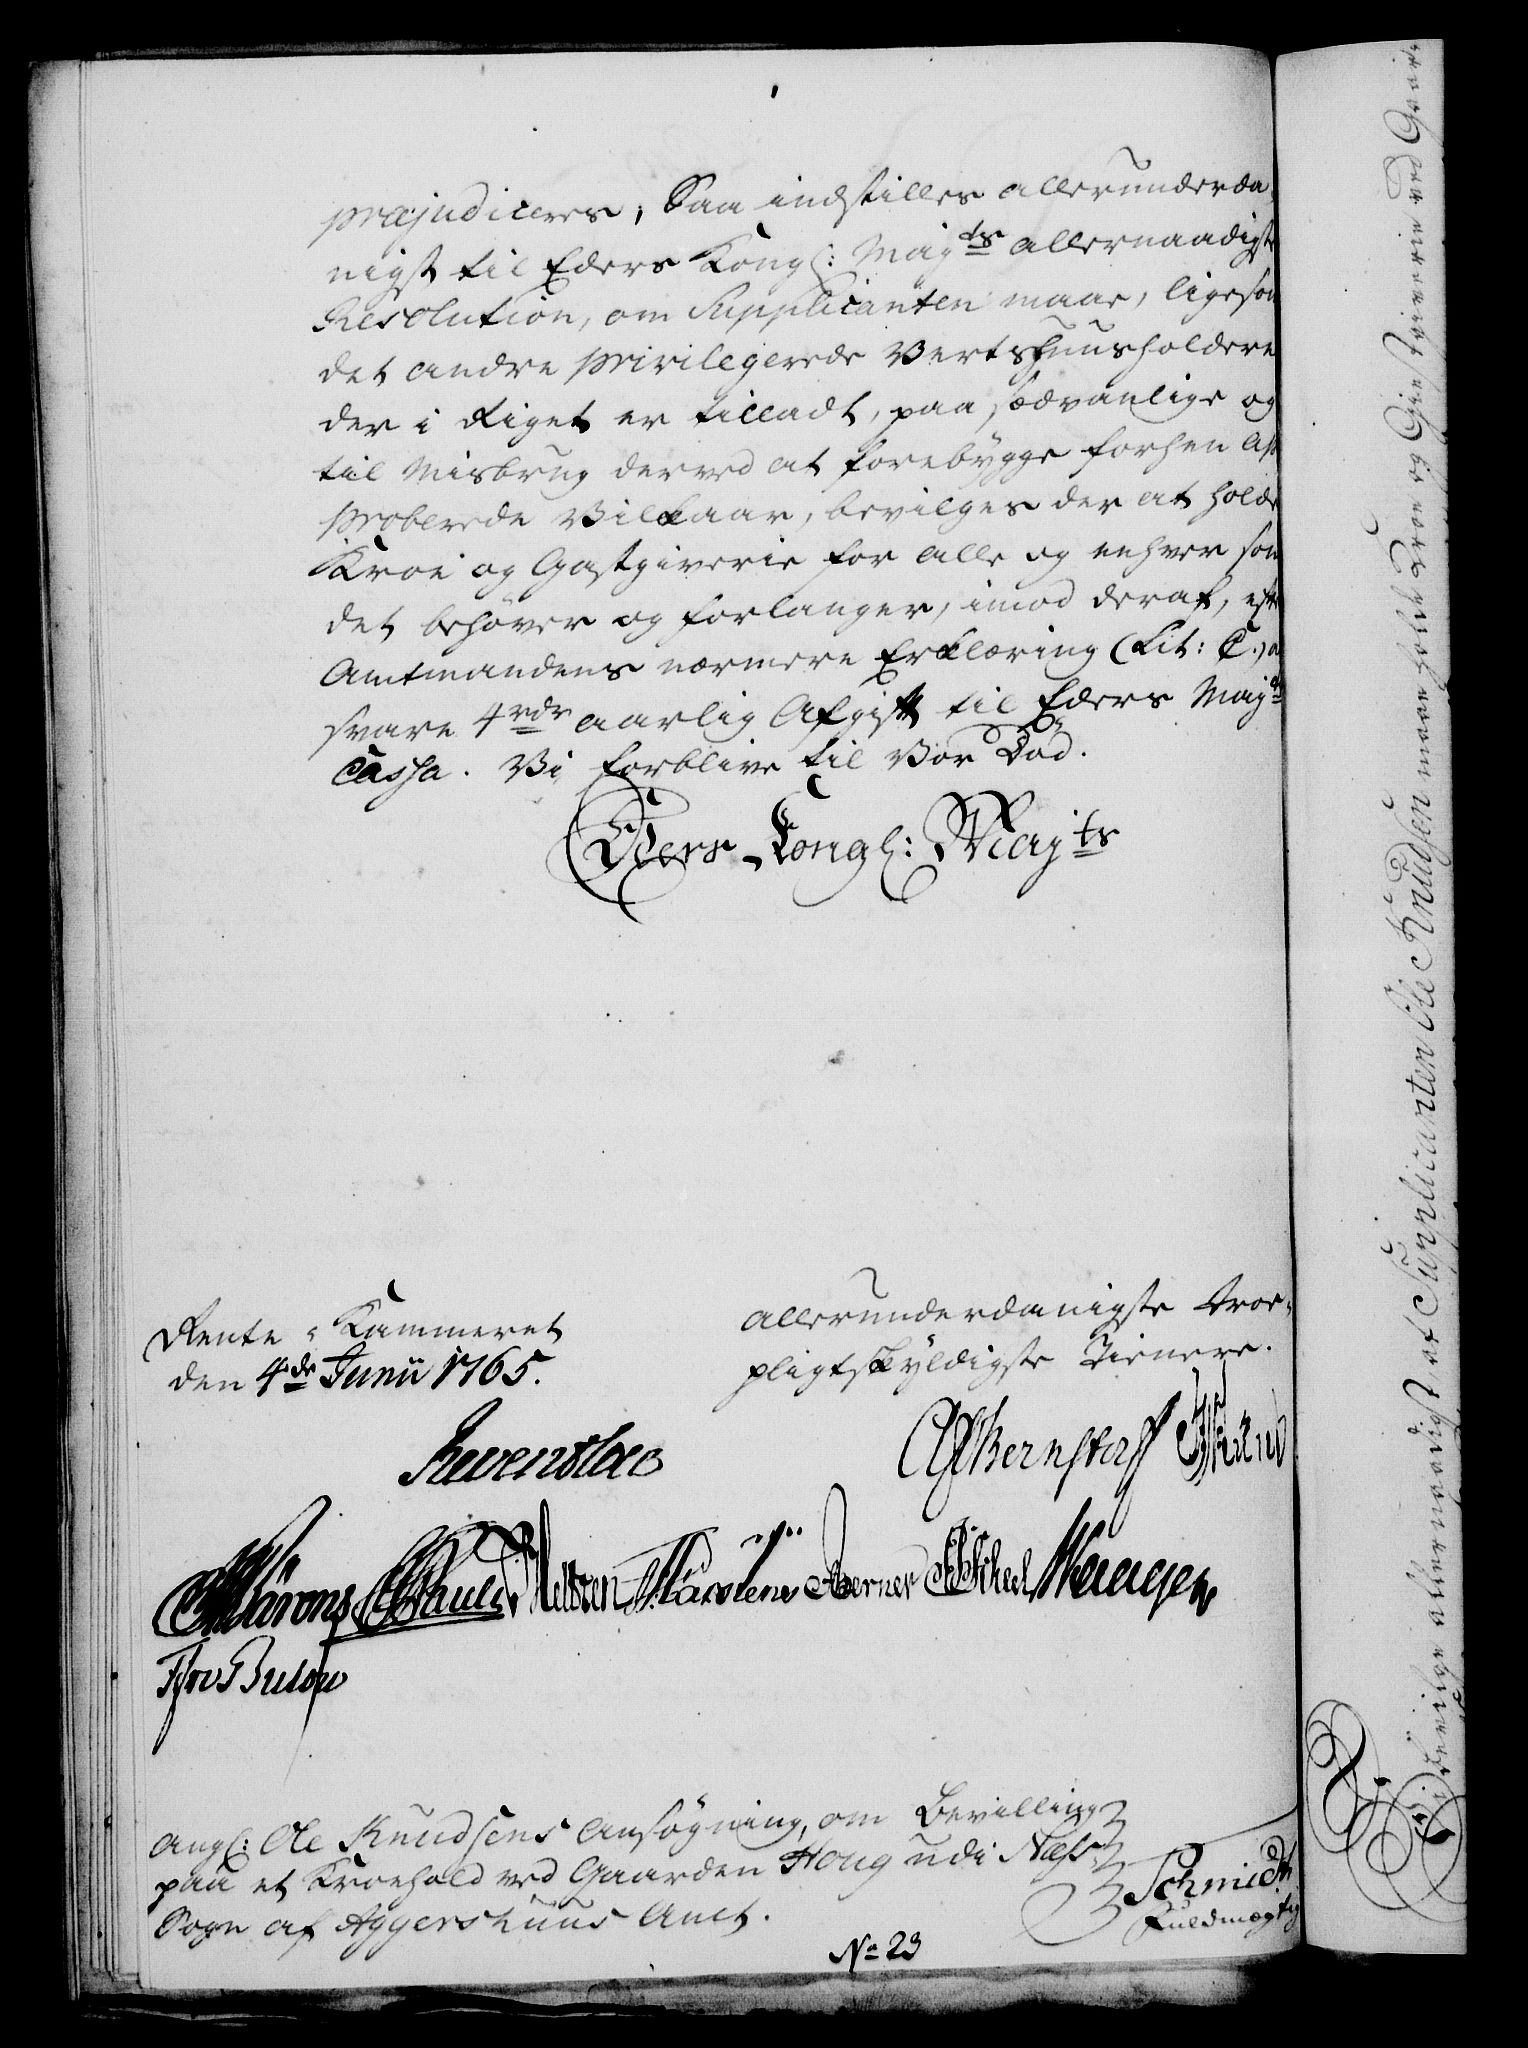 præjudiceres, Saa indstilles allerunderda-
nigst til Eders Kongl: Majts allernaadigste
Resolution, om Supplicanten maae, ligesom
det andre privilegerede Vertshuusholdere
der i Riget er tilladt, paa sædvanlige og
til Misbrug derved at forebygge forhen ap-
proberede Vilkaar, bevilges der at holde
Kroe og Gastgiverie for alle og enhver som
det behöver og forlanger, imod deraf, efter
Amtmandens nærmere Erklæring (Lit: C.) a
svare 4 rdr aarlig Afgift til Eders Majts
Cassa. Vi forblive til Vor Död.
Eders Kongl: Majts
Rente-Kammeret
den 4de Junii 1765.
allerunderdanigste troe-
pligtskyldigste Tienere.
Reventlau
Bernstorff
Pauli
Berner
Bulow
angl: Ole Knudsens Ansögning, om Bevilling
paa et Kroehold ved Gaarden Houg udi Næss
Sogn af Aggershuus Amt.
Schmidth
Fuldmægtig
No 23
Vi bevilge allernaadigst, at Supplicanten Ole Knudsen maae holde Kroe og Giestgiverie ved Gaar-